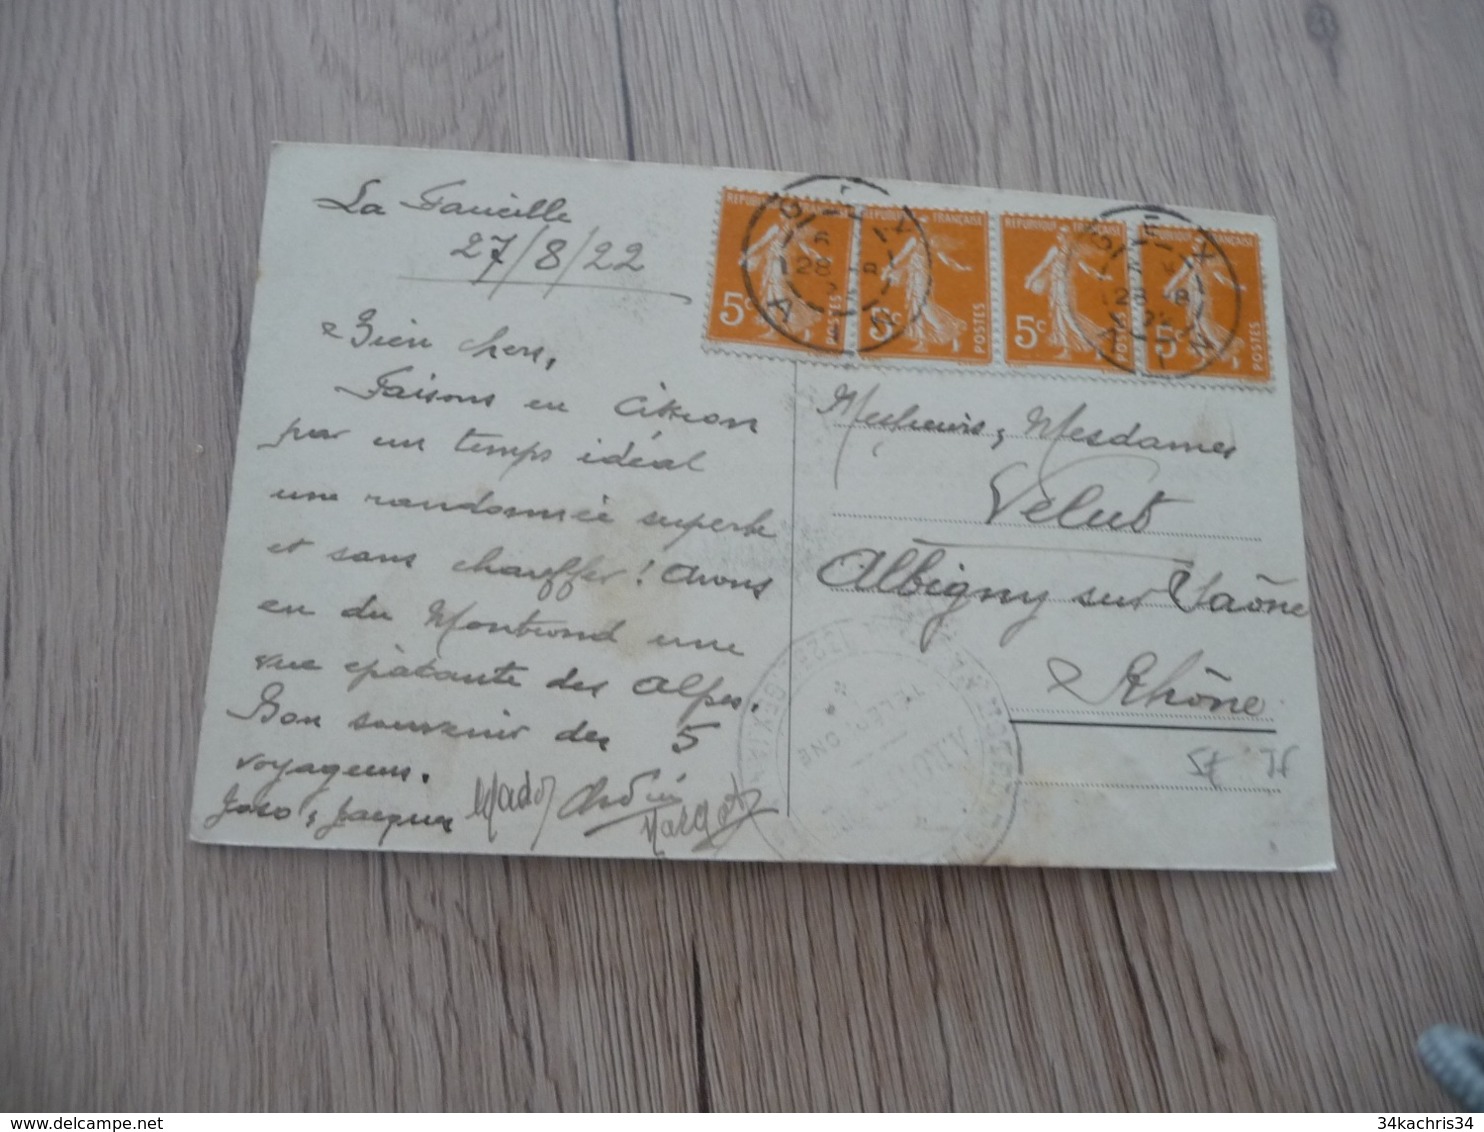 La Faucille
27/8/22
Bien chers,
Faisons en Citroen
par un temps idéal
une randonnée superbe
et sans chauffer! Avons
eu du Montrond une
vue épatante des Alpes.
Bon souvenir des 5
voyageurs.
Jacques Mado Margot
REPUBLIQUE FRANÇAISE
5c POSTES
REPUBLIQUE FRANÇAISE
5c POSTES
REPUBLIQUE FRANÇAISE
5c POSTES
REPUBLIQUE FRANÇAISE
5c POSTES
28
28
Messieurs, Mesdames
Velut
Albigny sur Saône
Rhône
TELEPHONE
34kachris34